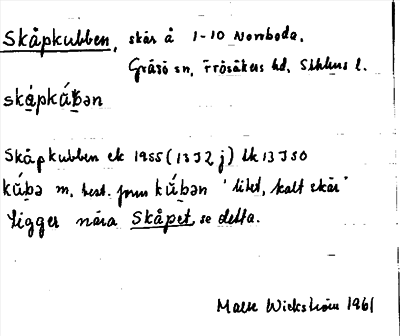 Skåpkubben, skär å 1-10 Norrboda,
Gräsö sn, Frösåkers hd, Sthlms l.
skå̱pkú̱bən
Skåpkubben ek 1955 (13 I 2 j) tk 13 I SO
kúbə m, best. form kúbən 'litet, kalt skär'
Ligger nära Skåpet, se detta.
Malte Wickström 1961